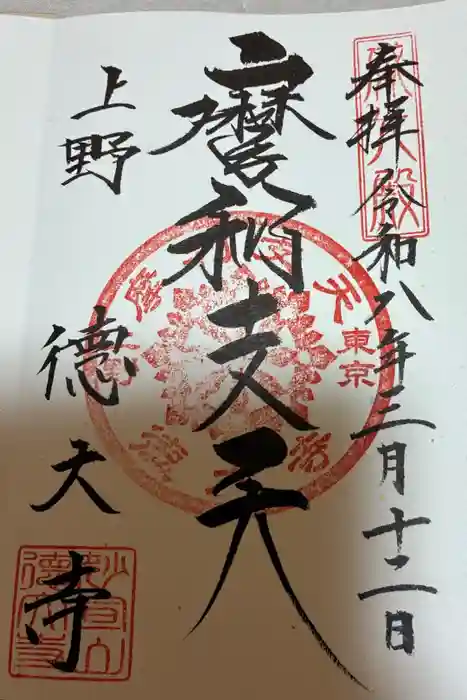 奉拝 令和八年三月十二日
摩利支天
上野 德大寺
東京